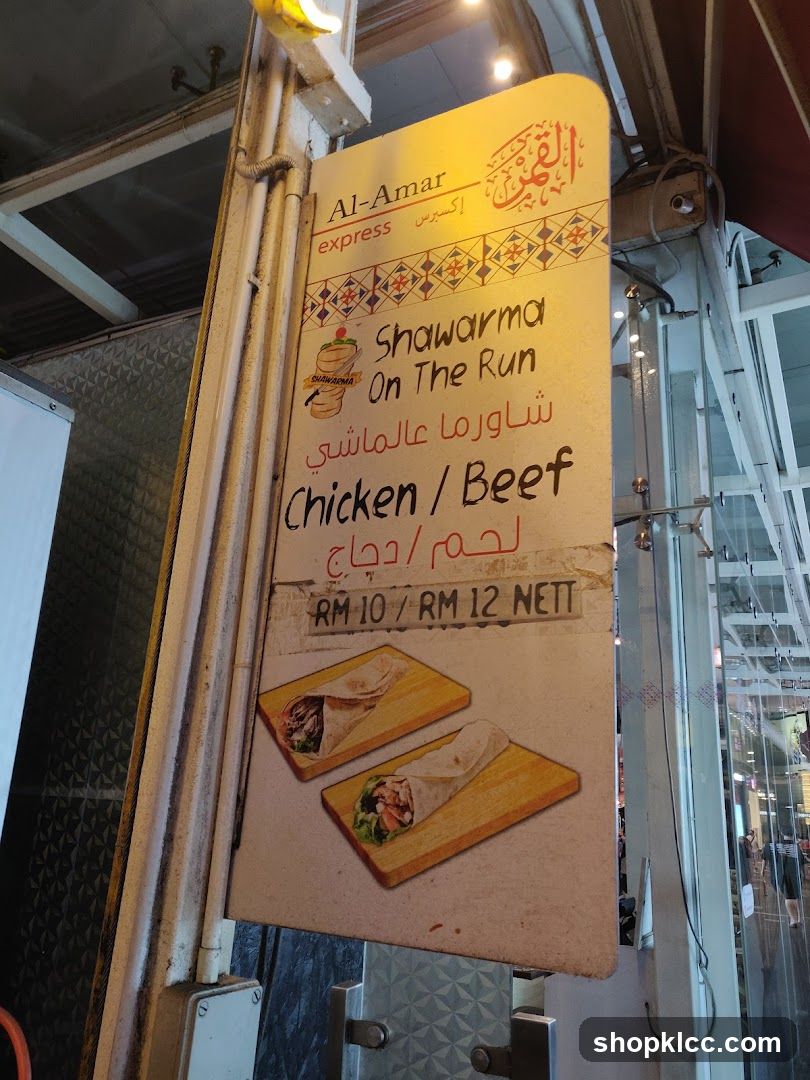 القمر
Al-Amar
express إكسبرس
SHAWARMA
Shawarma
On The Run
شاورما عالماشي
Chicken / Beef
لحم / دجاج
RM 10 / RM 12 NETT
shopklcc.com